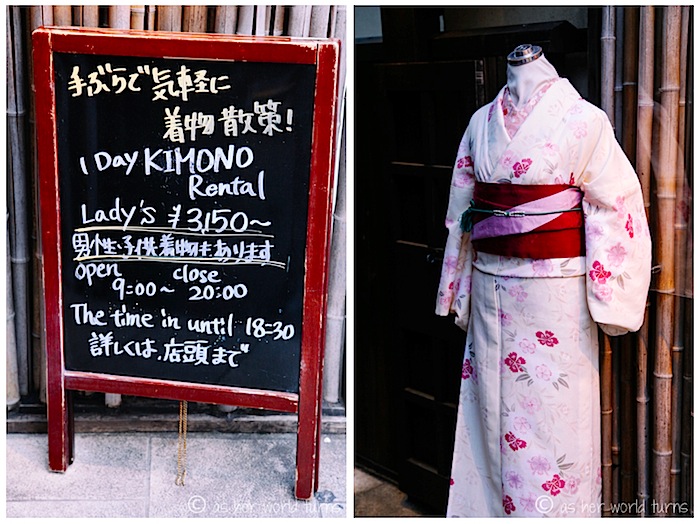 手ぶらで気軽に
着物散策!
1 Day KIMONO
Rental
Lady's ¥3,150~
男性、子供着物もあります
open close
9:00~ 20:00
The time in until 18:30
詳しくは、店頭まで
© as her world turns
© as her world turns